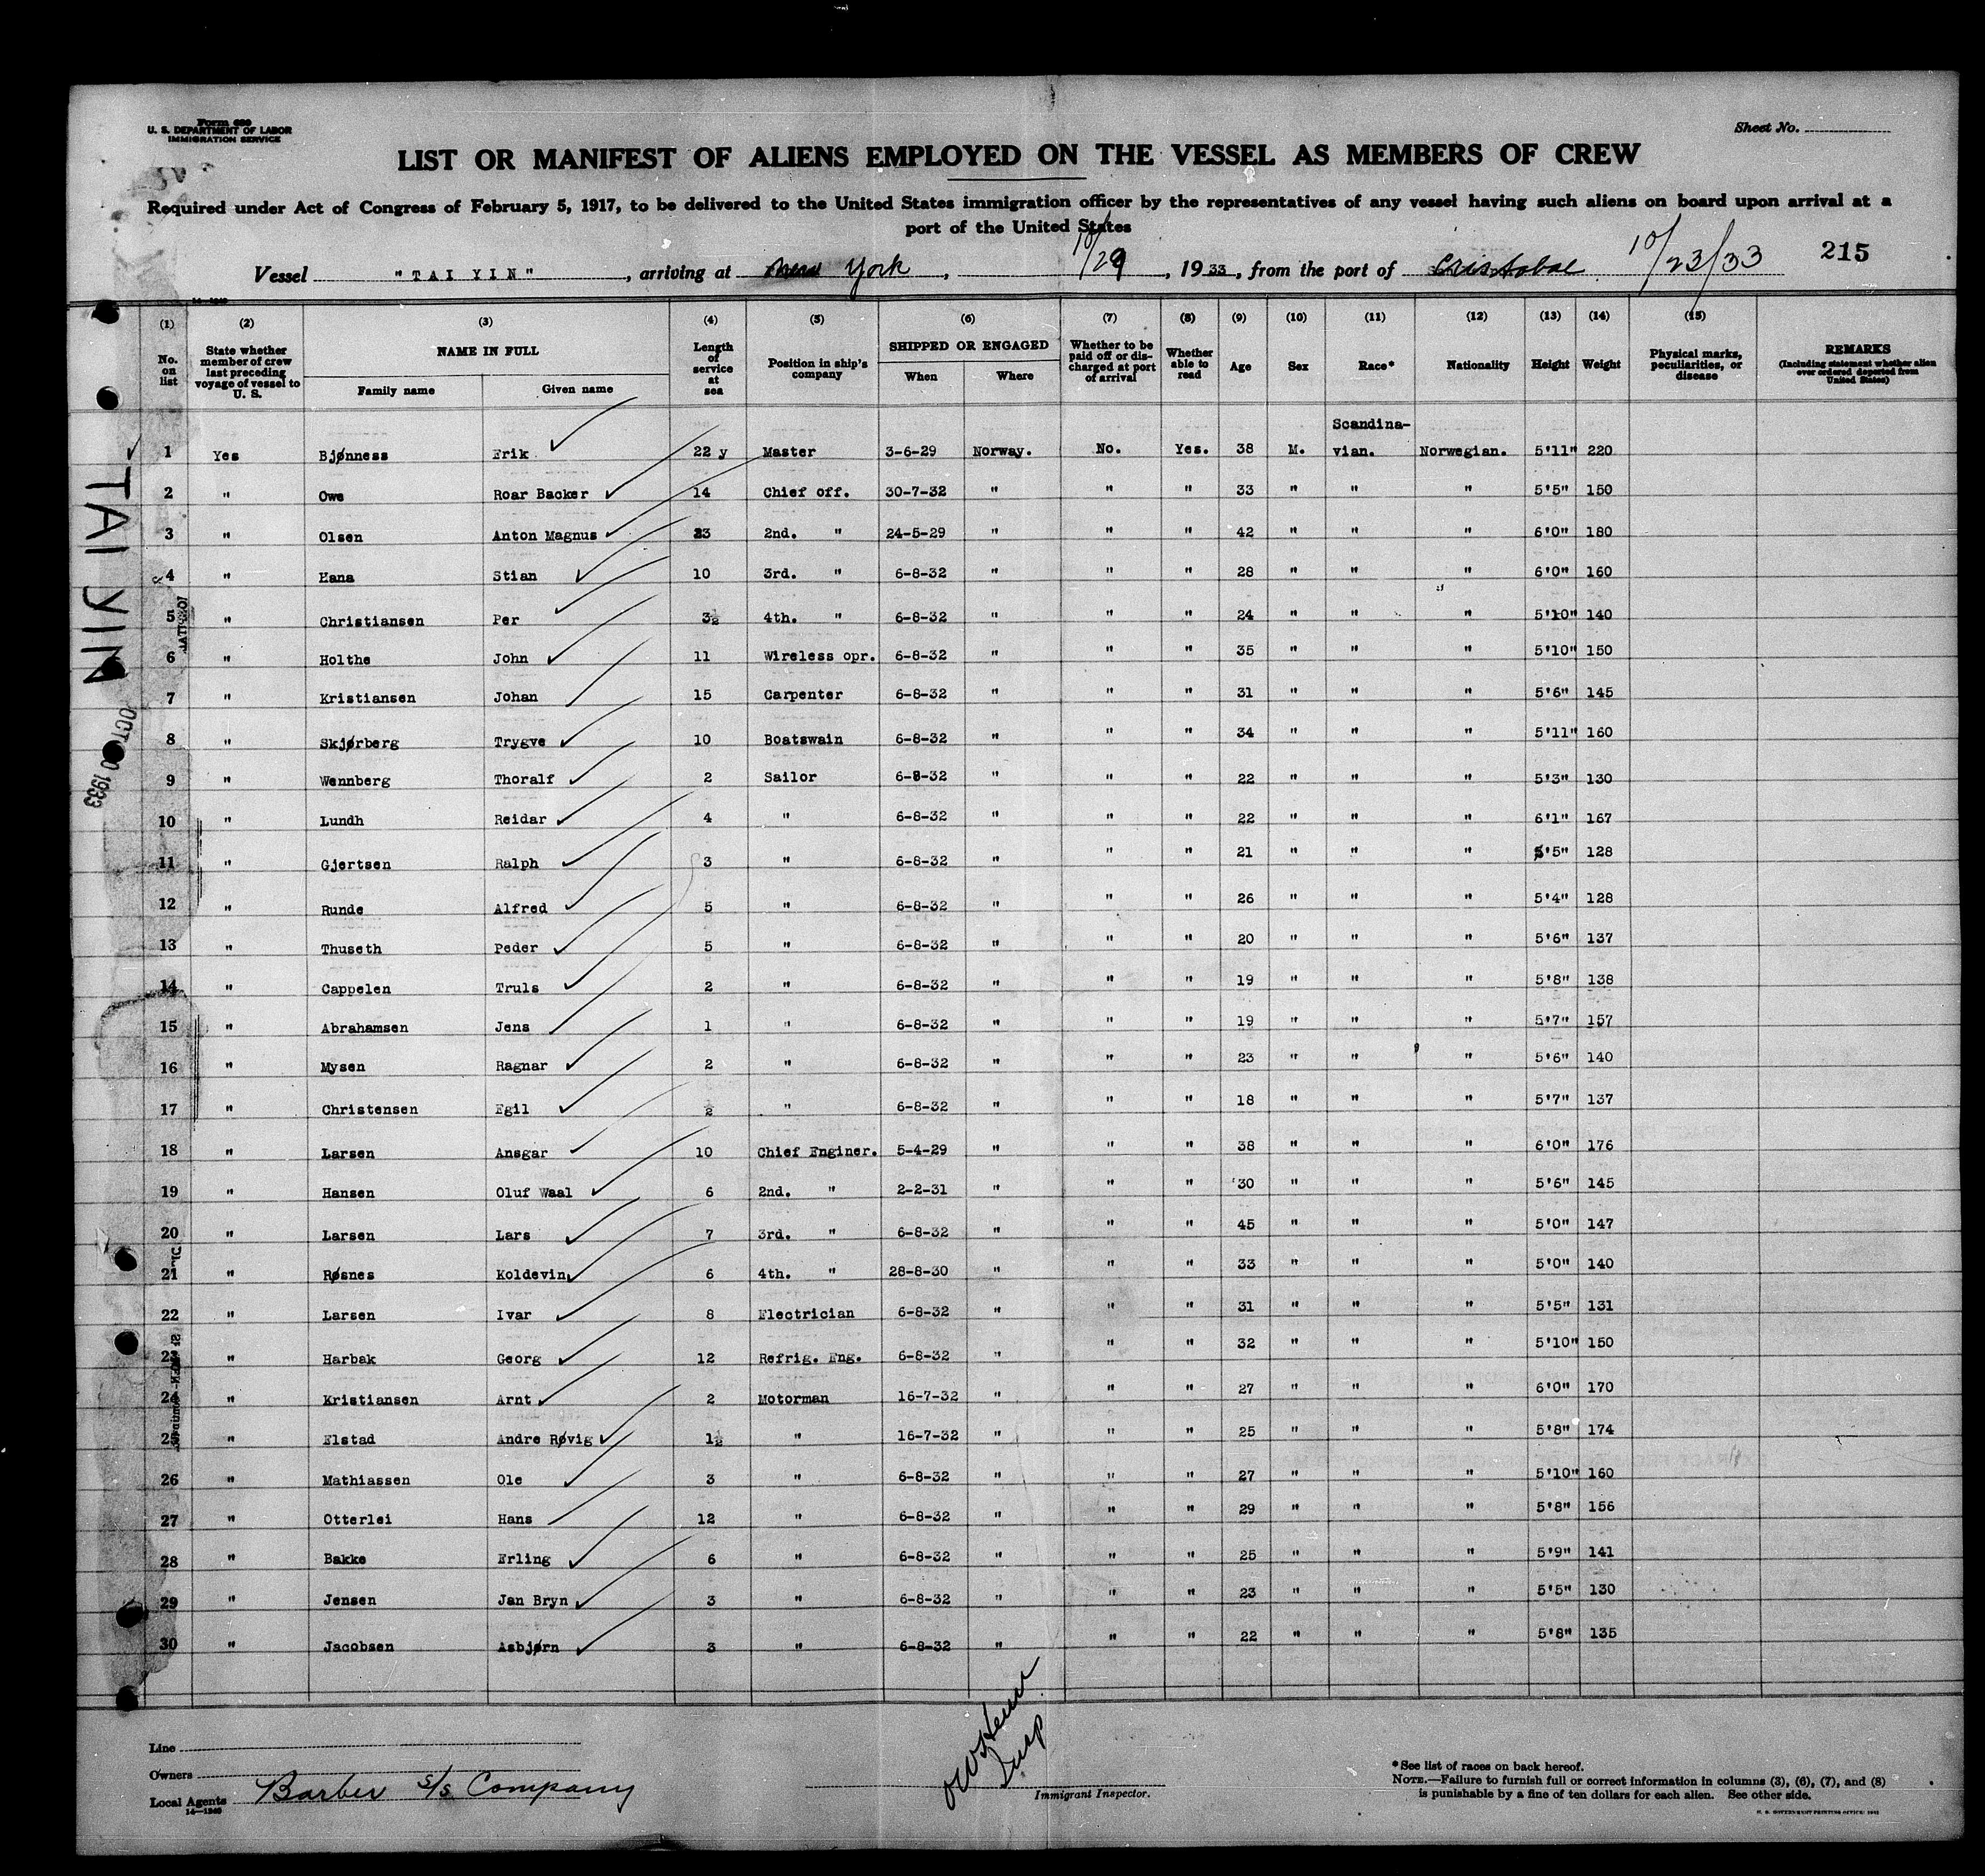 Form 689
U. S. DEPARTMENT OF LABOR
IMMIGRATION SERVICE
Sheet No.
LIST OR MANIFEST OF ALIENS EMPLOYED ON THE VESSEL AS MEMBERS OF CREW
Required under Act of Congress of February 5, 1917, to be delivered to the United States immigration officer by the representatives of any vessel having such aliens on board upon arrival at a
port of the United States
Vessel "TAI YIN", arriving at New York, 10/29, 1933, from the port of Cristobal 10/23/33 215
14-1240
(1) (2) (3) (4) (5) (6) (7) (8) (9) (10) (11) (12) (13) (14) (15)
No. on list
State whether member of crew last preceding voyage of vessel to U. S.
NAME IN FULL
Family name Given name
Length of service at sea
Position in ship's company
SHIPPED OR ENGAGED
When Where
Whether to be paid off or discharged at port of arrival
Whether able to read
Age Sex Race* Nationality Height Weight
Physical marks, peculiarities, or disease
REMARKS
(Including statement whether alien ever ordered deported from United States)
1 Yes Bjønness Erik 22 y Master 3-6-29 Norway. No. Yes. 38 M. Scandina-vian. Norwegian. 5'11" 220
2 " Owe Roar Backer 14 Chief off. 30-7-32 " " " 33 " " " 5'5" 150
3 " Olsen Anton Magnus 23 2nd. " 24-5-29 " " " 42 " " " 6'0" 180
4 " Hana Stian 10 3rd. " 6-8-32 " " " 28 " " " 6'0" 160
5 " Christiansen Per 3½ 4th. " 6-8-32 " " " 24 " " " 5'10" 140
6 " Holthe John 11 Wireless opr. 6-8-32 " " " 35 " " " 5'10" 150
7 " Kristiansen Johan 15 Carpenter 6-8-32 " " " 31 " " " 5'6" 145
8 " Skjørberg Trygve 10 Boatswain 6-8-32 " " " 34 " " " 5'11" 160
9 " Wennberg Thoralf 2 Sailor 6-8-32 " " " 22 " " " 5'3" 130
10 " Lundh Reidar 4 " 6-8-32 " " " 22 " " " 6'1" 167
11 " Gjertsen Ralph 3 " 6-8-32 " " " 21 " " " 5'5" 128
12 " Runde Alfred 5 " 6-8-32 " " " 26 " " " 5'4" 128
13 " Thuseth Peder 5 " 6-8-32 " " " 20 " " " 5'6" 137
14 " Cappelen Truls 2 " 6-8-32 " " " 19 " " " 5'8" 138
15 " Abrahamsen Jens 1 " 6-8-32 " " " 19 " " " 5'7" 157
16 " Mysen Ragnar 2 " 6-8-32 " " " 23 " " " 5'6" 140
17 " Christensen Egil ½ " 6-8-32 " " " 18 " " " 5'7" 137
18 " Larsen Ansgar 10 Chief Enginer. 5-4-29 " " " 38 " " " 6'0" 176
19 " Hansen Oluf Waal 6 2nd. " 2-2-31 " " " 30 " " " 5'6" 145
20 " Larsen Lars 7 3rd. " 6-8-32 " " " 45 " " " 5'0" 147
21 " Røsnes Koldevin 6 4th. " 28-8-30 " " " 33 " " " 5'0" 140
22 " Larsen Ivar 8 Electrician 6-8-32 " " " 31 " " " 5'5" 131
23 " Harbak Georg 12 Refrig. Eng. 6-8-32 " " " 32 " " " 5'10" 150
24 " Kristiansen Arnt 2 Motorman 16-7-32 " " " 27 " " " 6'0" 170
25 " Elstad Andre Røvig 1½ " 16-7-32 " " " 25 " " " 5'8" 174
26 " Mathiassen Ole 3 " 6-8-32 " " " 27 " " " 5'10" 160
27 " Otterlei Hans 12 " 6-8-32 " " " 29 " " " 5'8" 156
28 " Bakke Erling 6 " 6-8-32 " " " 25 " " " 5'9" 141
29 " Jensen Jan Bryn 3 " 6-8-32 " " " 23 " " " 5'5" 130
30 " Jacobsen Asbjørn 3 " 6-8-32 " " " 22 " " " 5'8" 135
TAI YIN
OCT 30 1933
Line
Owners
Local Agents Barber S/S Company
14-1240
Insp
Immigrant Inspector.
*See list of races on back hereof.
NOTE.—Failure to furnish full or correct information in columns (3), (6), (7), and (8)
is punishable by a fine of ten dollars for each alien. See other side.
U. S. GOVERNMENT PRINTING OFFICE: